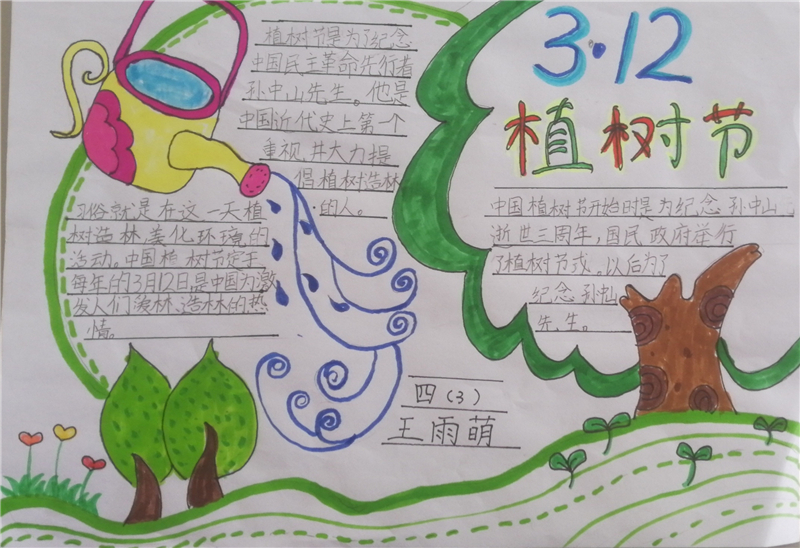 3·12
植树节
植树节是为纪念
中国民主革命先行者
孙中山先生。他是
中国近代史上第一个
重视并大力提
倡植树造林
的人。
习俗就是在这一天植
树造林美化环境的
活动。中国植树节定于
每年的3月12日是中国为激
发人们爱林、造林的热
情。
中国植树节开始时是为纪念孙中山
逝世三周年，国民政府举行
了植树节式。以后为了
纪念孙中山
先生。
四（3）
王雨萌